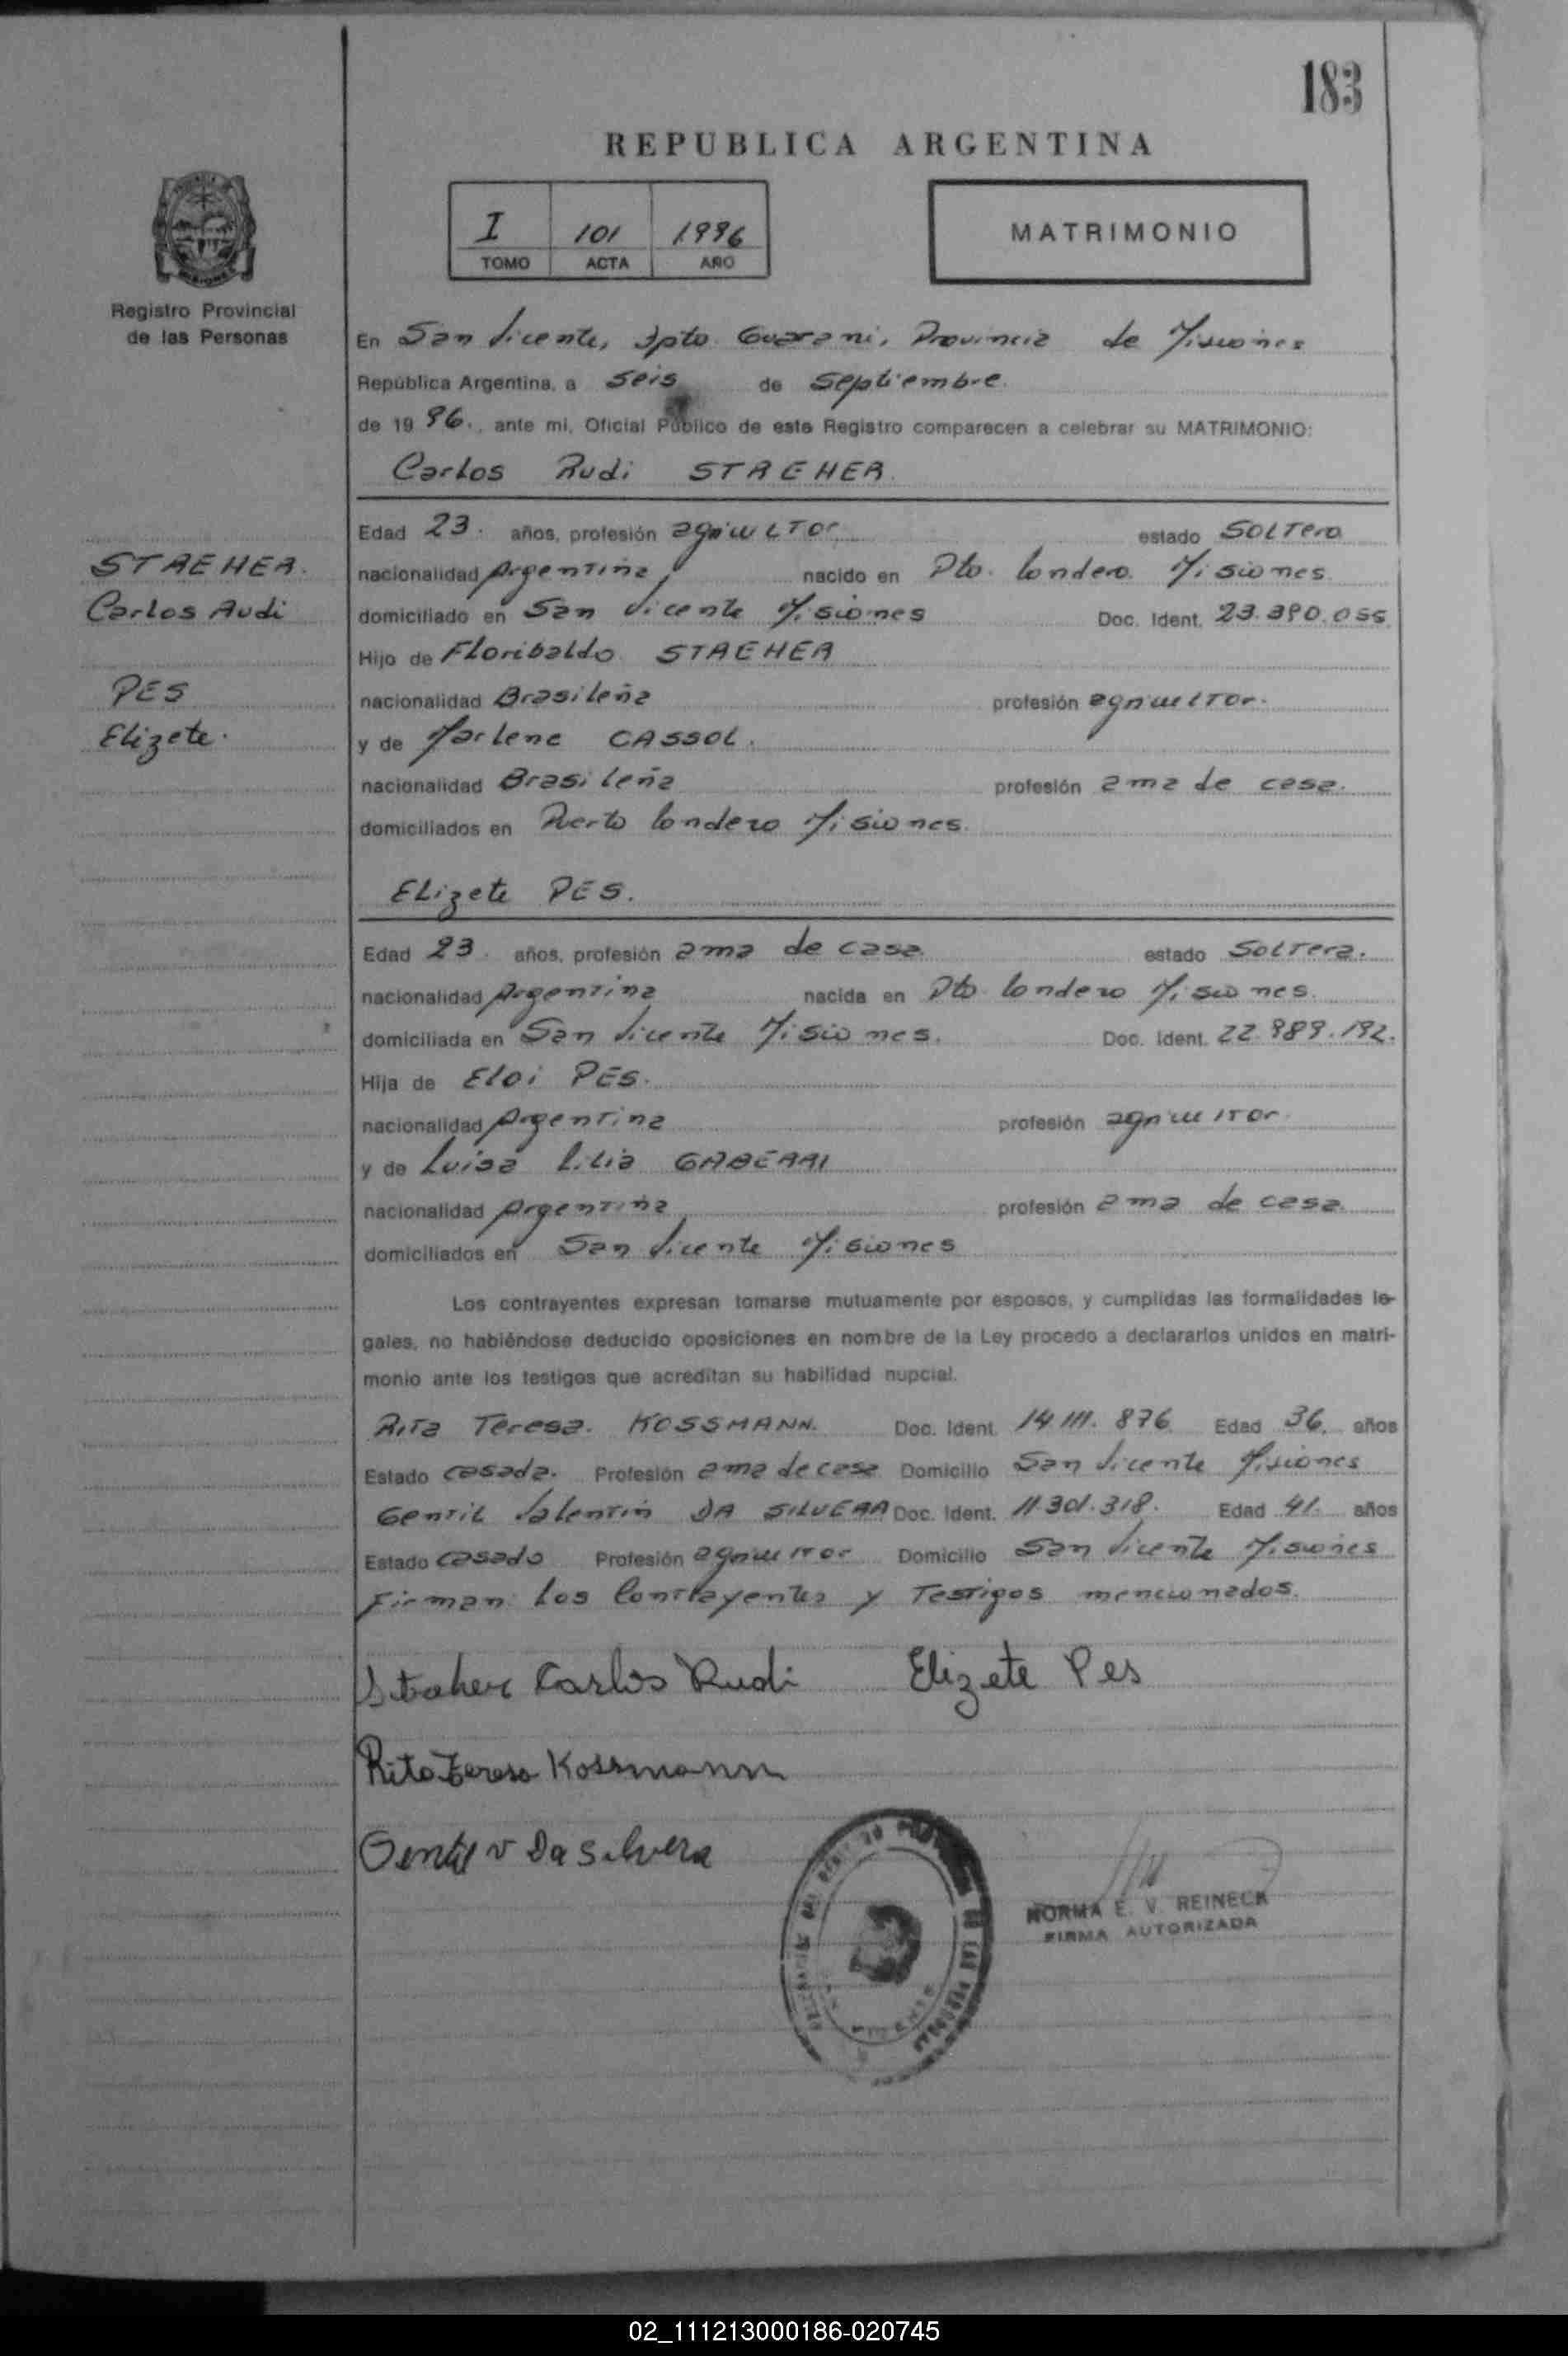 183
REPUBLICA ARGENTINA
I 101 1996
TOMO ACTA AÑO
MATRIMONIO
Registro Provincial
de las Personas
En San Vicente, Dpto. Guarani, Provincia de Misiones
República Argentina, a seis de Septiembre.
de 19 96., ante mi, Oficial Público de este Registro comparecen a celebrar su MATRIMONIO:
Carlos Rudi STREHER.
STREHER.
Carlos Rudi
PES
Elizete.
Edad 23. años, profesión agricultor estado Soltero
nacionalidad Argentina, nacido en Pto. Londero. Misiones.
domiciliado en San Vicente Misiones Doc. Ident. 23.390.055.
Hijo de Floribaldo STREHER
nacionalidad Brasileña profesión agricultor.
y de Marlene CASSOL.
nacionalidad Brasileña profesión ama de casa.
domiciliados en Puerto Londero Misiones.
Elizete PES.
Edad 23. años, profesión ama de casa. estado Soltera.
nacionalidad Argentina nacida en Pto Londero Misiones.
domiciliada en San Vicente Misiones. Doc. Ident. 22.989.192.
Hija de Eloi PES.
nacionalidad Argentina profesión agricultor.
y de Luisa Lilia GABERRI
nacionalidad Argentina profesión ama de casa.
domiciliados en San Vicente Misiones
Los contrayentes expresan tomarse mutuamente por esposos, y cumplidas las formalidades le-
gales, no habiéndose deducido oposiciones en nombre de la Ley procedo a declararlos unidos en matri-
monio ante los testigos que acreditan su habilidad nupcial.
Rita Teresa. KOSSMANN. Doc. Ident. 14.111.876. Edad 36. años
Estado casada. Profesión ama de casa Domicilio San Vicente Misiones
Gentil Valentin DA SILVERA Doc. Ident. 11.301.318. Edad 41. años
Estado casado Profesión agricultor Domicilio San Vicente Misiones
Firman los Contrayentes y Testigos mencionados.
Streher Carlos Rudi Elizete Pes
Rita Teresa Kossmann
Gentil V Da Silvera
NORMA E. V. REINECK
FIRMA AUTORIZADA
02_111213000186-020745